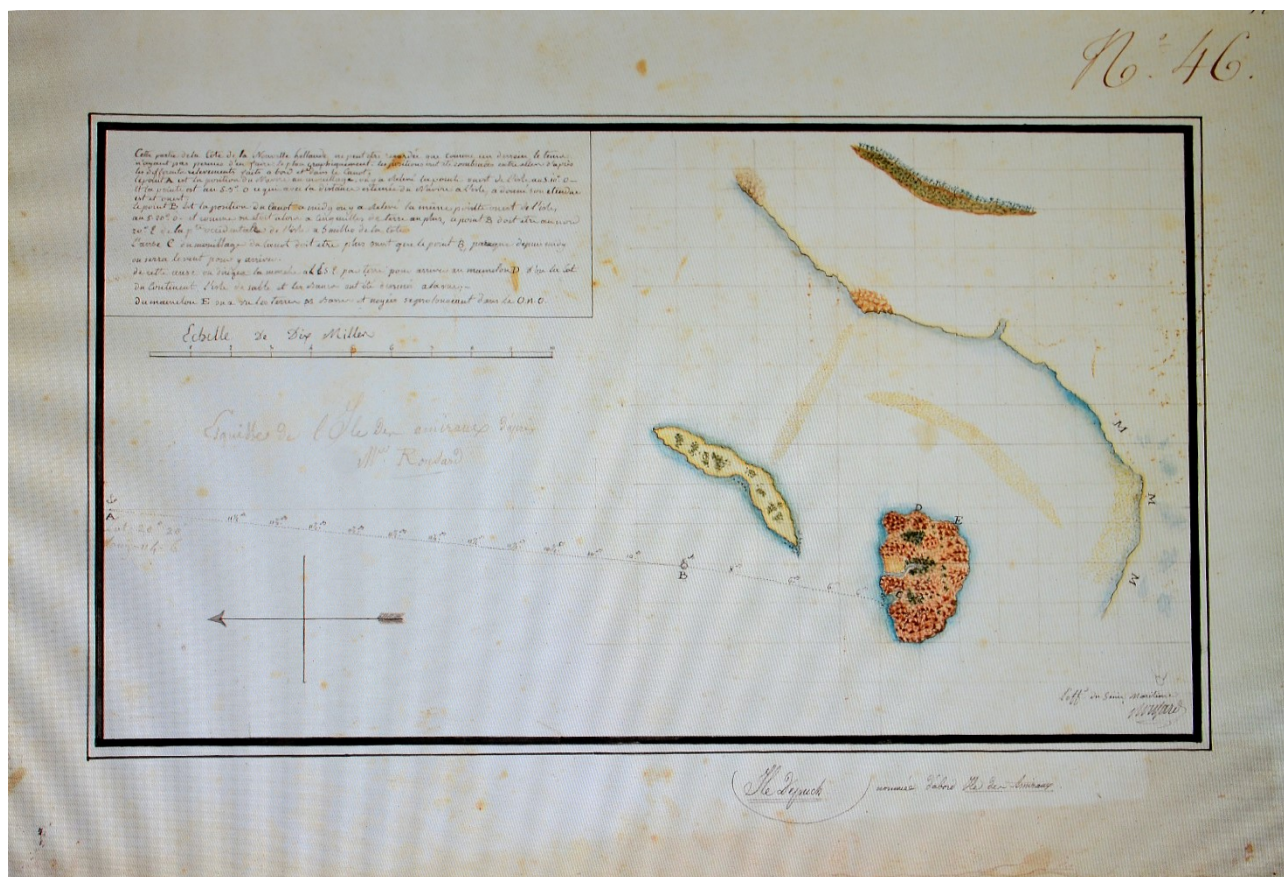 N.° 46.
Cette partie de la Côte de la Nouvelle hollande, ne peut être regardée que comme un dessein, le tems
n'ayant pas permis d'en faire le plan géographiquement. les positions ont été combinées entre elles d'après
les différents relevements faits à bord et dans le Canot.
le point A est la position du Navire au mouillage, on y a relevé la pointe ouest de l'isle au S.10° O
et la pointe est au S.5° O ce qui avec la distance estimée du Navire a l'isle, a donné son etendue
est et ouest.
le point B est la position du Canot a midi, on y a relevé la même pointe ouest de l'isle,
au S.20° O et comme on etait alors a cinq milles de terre au plus, le point B doit être au nord
20° E de la pte occidentale de l'isle a 5 milles de la côte
l'anse C du mouillage du canot doit être plus ouest que le point B parceque depuis midy
on serra le vent pour y arriver.
de cette anse on dirigea la marche au S E par terre pour arriver au mamelon D d'où les
du Continent l'isle de sable et les bancs ont été
Du mamelon E on a vu les terres M basses et noyées se prolongeant dans le O.n.O.
Echelle de Dix Milles
1 2 3 4 5 6 7 8 9 10
Esquisse de l'Ile des amiraux depuis
Mr. Ronsard
A
B
C
D
E
M
M
M
l'offr. du Génie Maritime
Ronsard
Ile Depuch
nommée d'abord Ile des Amiraux